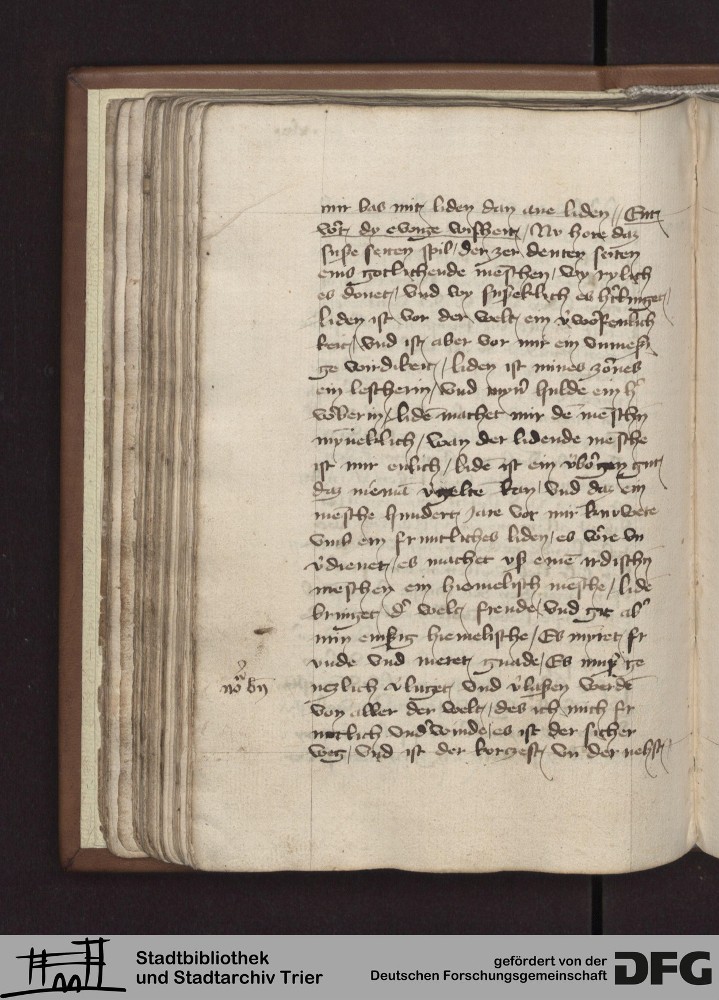 mir bas mit liden dan ane liden // Ent
wort dy ewyge wisheit / Nv hore daz
suße seiten spil / der zer denten seiten
eins gotlichende meschen / wy rylich
es donet / vnd wy sußeklich es h'klinget
liden ist vor der welt ein v'worfenlich
keit / vnd ist aber vor mir ein vnmeß
ge wirdikeit / liden ist mines zornes
ein lescherin / vnd myn' hulde ein h'
w'berin / lide machet mir de meschn
mynneklich / wan der lidende mesche
ist mir enlich / lide ist ein v'borgen gut
daz niema v'gelte kan / vnd daz ein
mesche hundert jare vor mir knuwete
vmb ein fruntliches liden / es w're vn
v'dienet / es machet vß eine irdischn
meschen ein hiemelisch mesche / lide
bringet d' welt freude / vnd git ab'
min einkig hiemelische / Es myret fr
unde vnd meret gnade / Es muß ge
nczlich v'luget vnd v'laßen werde
von aller der welt / des ich mich fr
untlich vnd'winde / es ist der sicher
weg / vnd ist der korczest vn der nehst
no bn
Stadtbibliothek
und Stadtarchiv Trier
gefördert von der
Deutschen Forschungsgemeinschaft
DFG